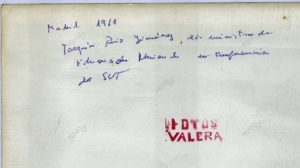 Madrid 1961
Joaquín Ruiz Giménez, ex-ministro de
Educación Nacional en conferencia
del SUT
FOTOS
VALERA